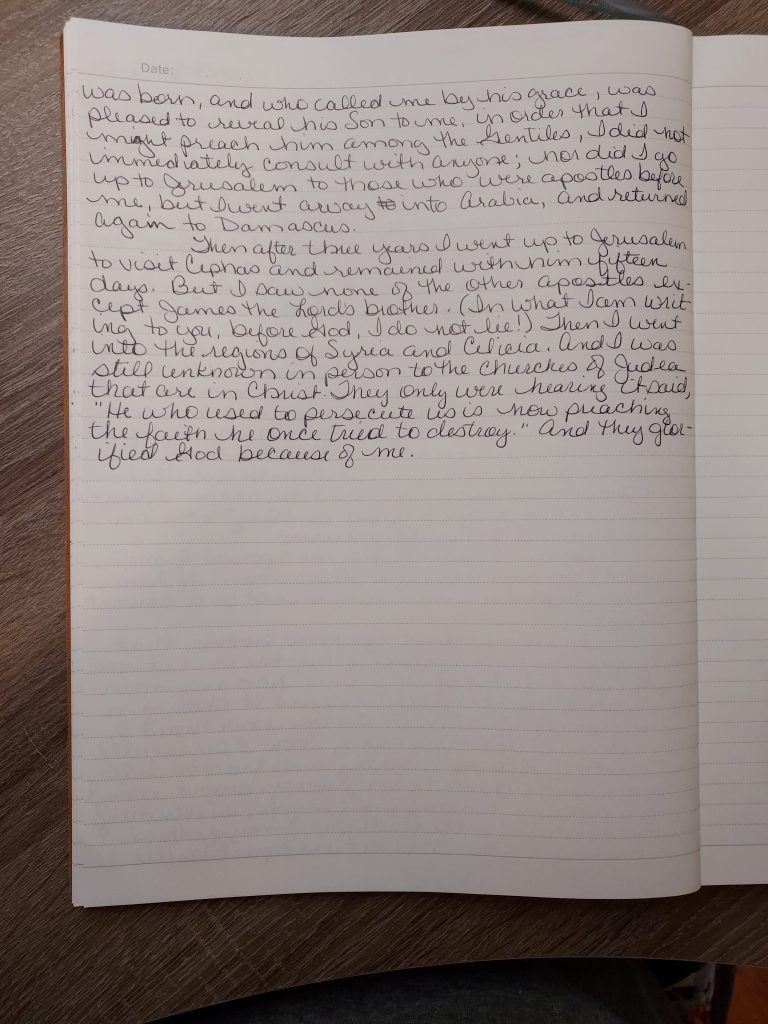 Date:
was born, and who called me by his grace, was
pleased to reveal his Son to me, in order that I
might preach him among the Gentiles, I did not
immediately consult with anyone; nor did I go
up to Jerusalem to those who were apostles before
me, but I went away to into Arabia, and returned
again to Damascus.
Then after three years I went up to Jerusalem
to visit Cephas and remained with him fifteen
days. But I saw none of the other apostles ex-
cept James the Lord's brother. (In what I am writ-
ing to you, before God, I do not lie!) Then I went
into the regions of Syria and Cilicia. And I was
still unknown in person to the churches of Judea
that are in Christ. They only were hearing it said,
"He who used to persecute us is now preaching
the faith he once tried to destroy." And they glor-
ified God because of me.